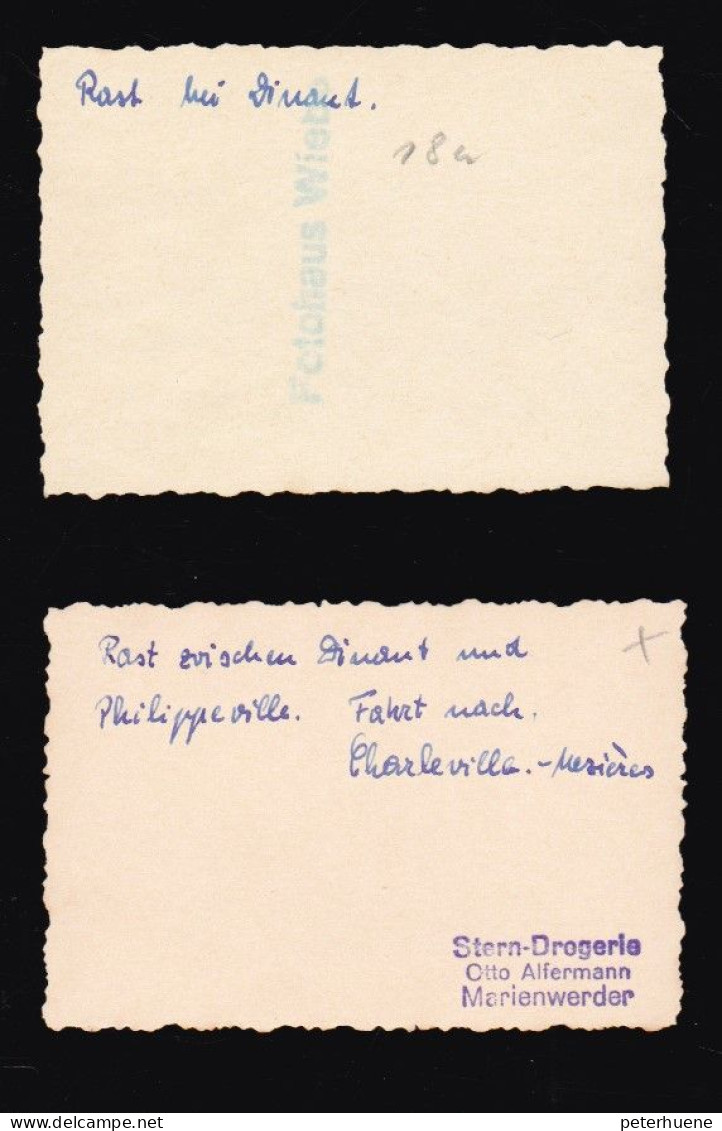 Rast bei Dinant.
18 a
Fotohaus Wiebe
Rast zwischen Dinant und
Philippeville. Fahrt nach.
Charleville.-Mezières
+
Stern-Drogerie
Otto Alfermann
Marienwerder
peterhuene